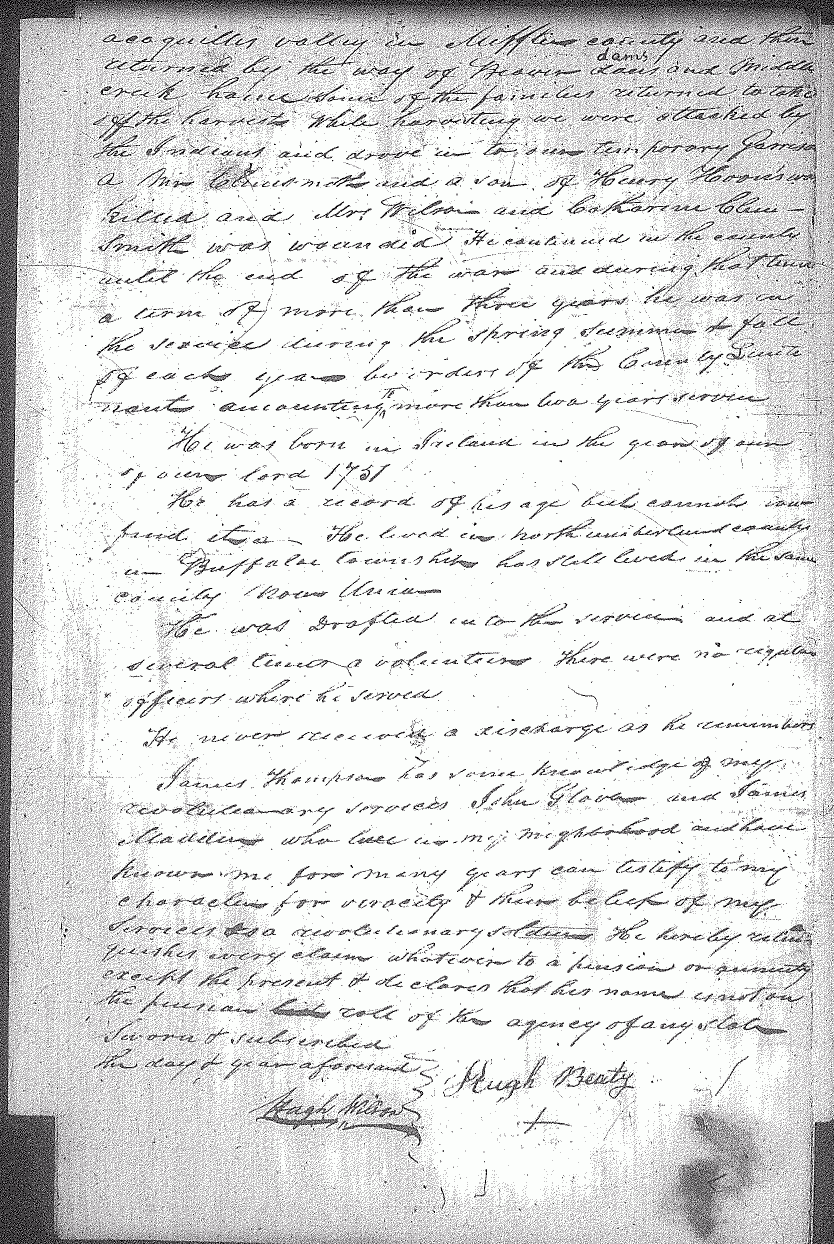 acoquillis valley in Mifflin county and then
returned by the way of Beaver dams and Middle
creek home Some of the families returned to take
off the harvest While harvesting we were attacked by
the Indians and drove in to our temporary Garrison
a Mr Clinesmith and a son of Henry Hoover's was
killed and Mrs Wilson and Catharine Cline-
Smith was wounded He continued in the county
until the end of the war and during that time
a term of more than three years he was in
the service during the spring summer & fall
of each year by orders of the County Lieute
nants amounting to more than two years service
He was born in Ireland in the year of our
of our lord 1751
He has a record of his age but cannot now
find it He lived in northumberland county
in Buffaloe township has still lived in the same
county now Union
He was Drafted into the service and at
several times a volunteer There were no regular
officers where he served
He never received a discharge as he remembers
James Thompson has some knowledge of my
revolutionary services John Glover and James
Madden who live in my neighborhood and have
known me for many years can testify to my
character for veracity & their belief of my
services as a revolutionary soldier He hereby relin-
quishes every claim whatever to a pension or annuity
except the present & declares that his name is not on
the pension roll of the agency of any state
Sworn & subscribed
the day & year aforesaid
Hugh Beaty
Hugh Wilson